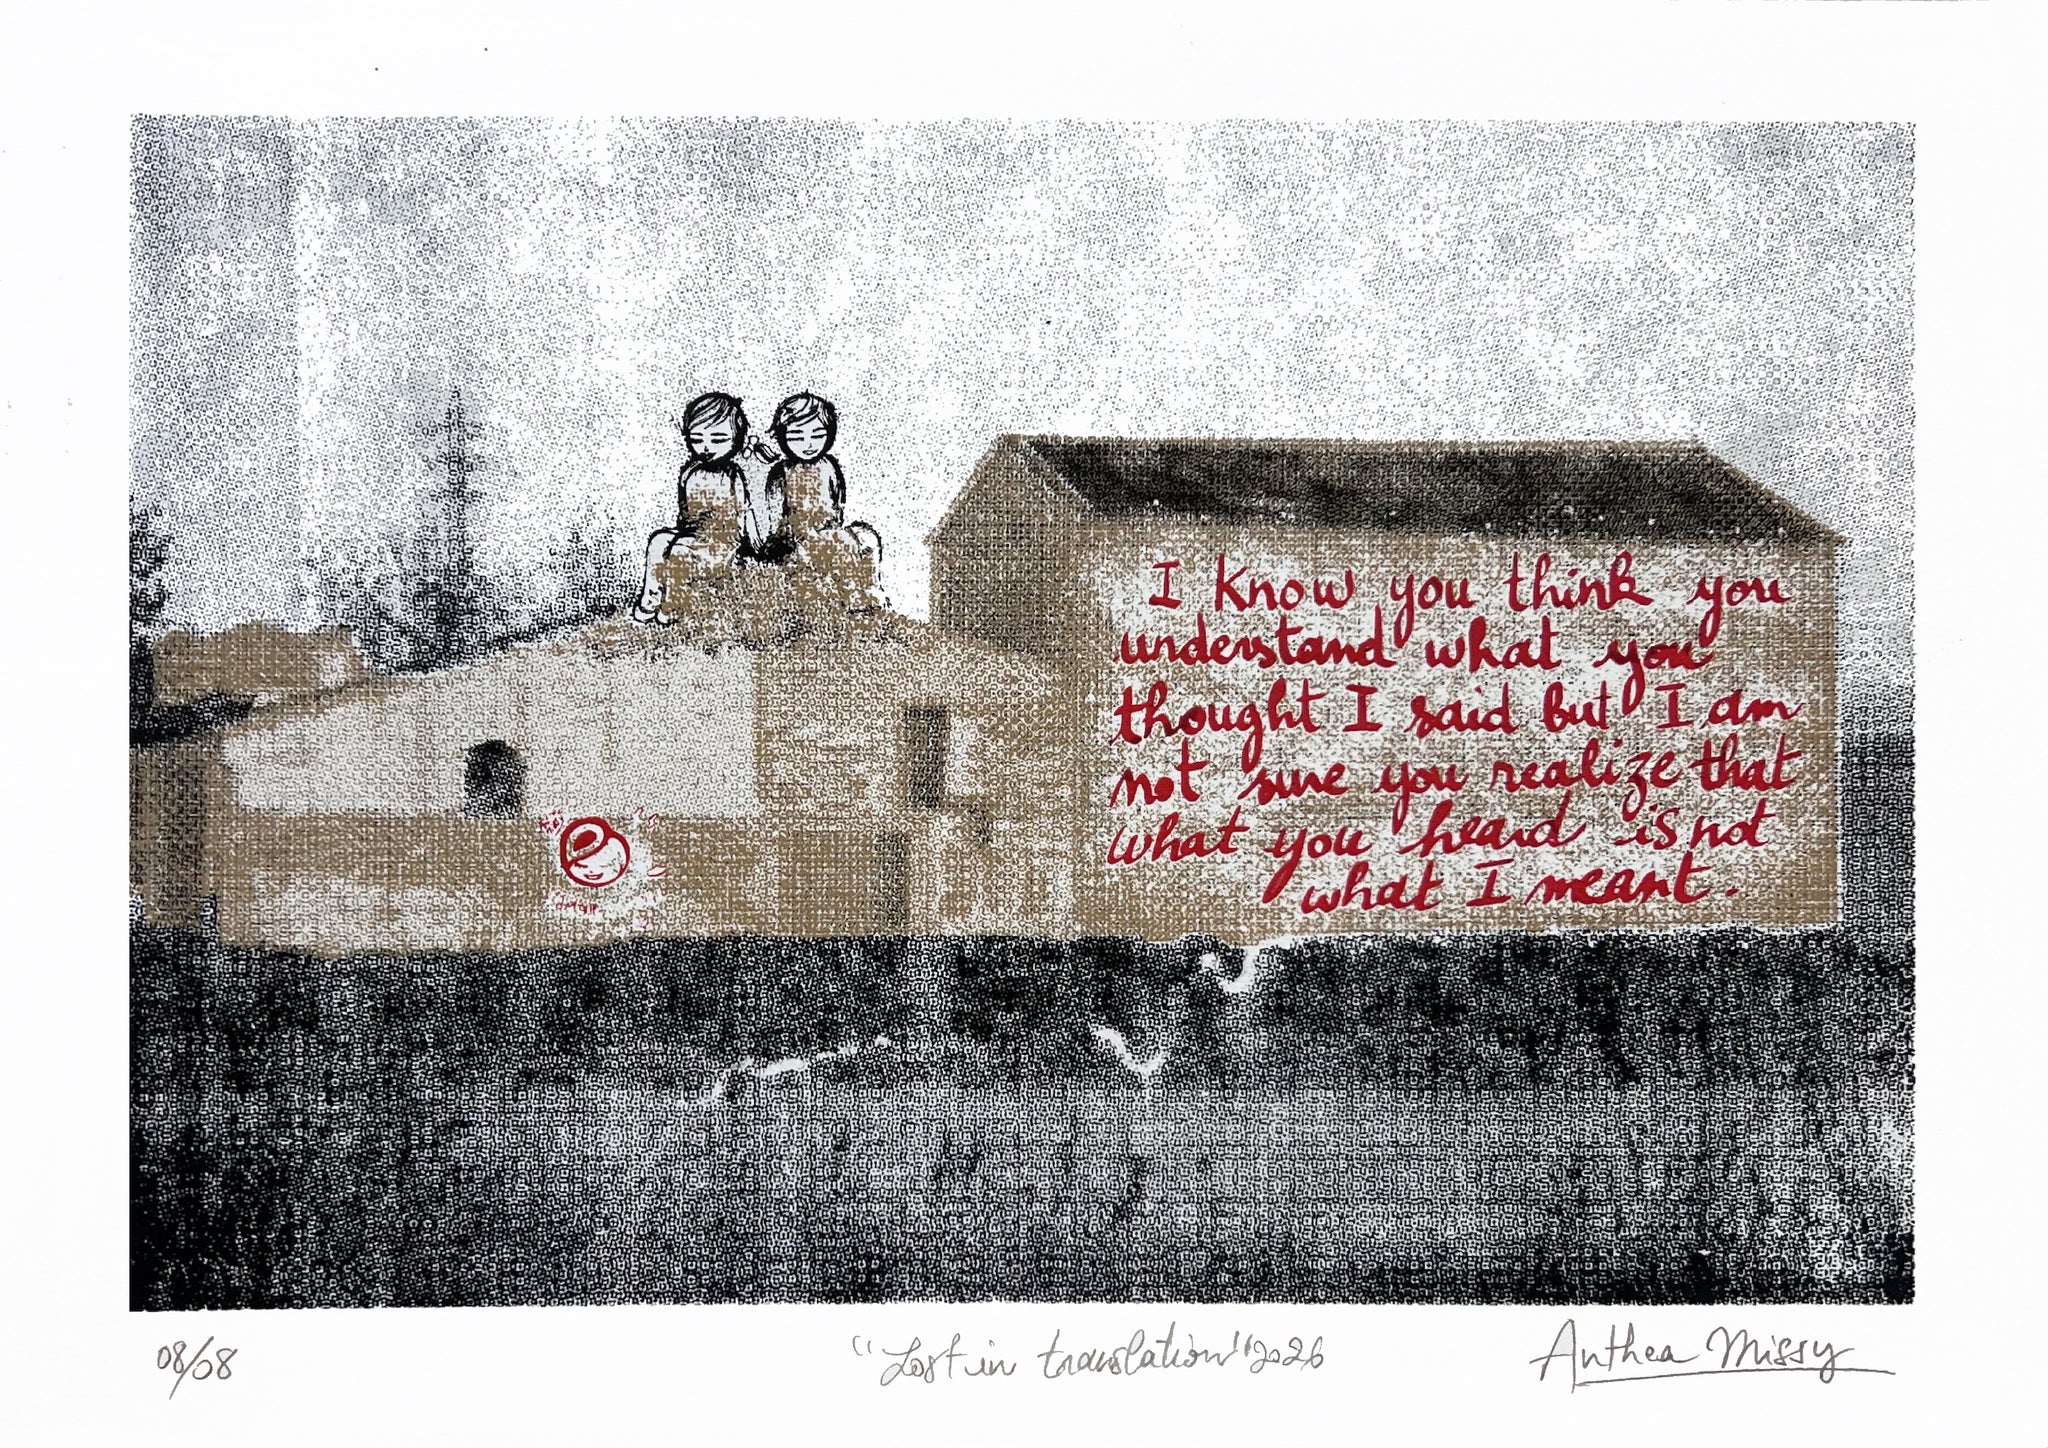 I know you think you
understand what you
thought I said but I am
not sure you realize that
what you heard is not
what I meant.
08/08
"Lost in translation" 2026
Anthea Missy